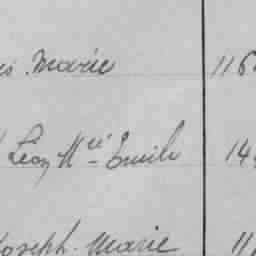 Marie 116
Léon Mce Emile 14
Joseph Marie 11